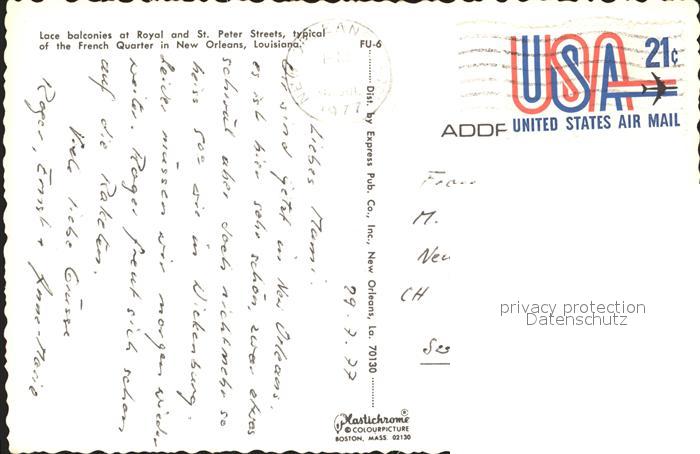 Lace balconies at Royal and St. Peter Streets, typical
of the French Quarter in New Orleans, Louisiana.
FU-6
29.7.77
Liebes Mami!
Wir sind jetzt in New Orleans.
es ist hier sehr schön, zwar etwas
schwül aber doch nicht mehr so
heiss 50° wie in Wickenburg.
Leider müssen wir morgen wieder
weiter. Roger freut sich schon
auf die Raketen.
Viele liebe Grüsse
Roger, Ernst + Anne-Marie
Dist. by Express Pub. Co., Inc., New Orleans, La. 70130
Plastichrome®
© COLOURPICTURE
BOSTON, MASS. 02130
1977
USA 21¢
UNITED STATES AIR MAIL
ADDR
M.
New
CH
privacy protection
Datenschutz